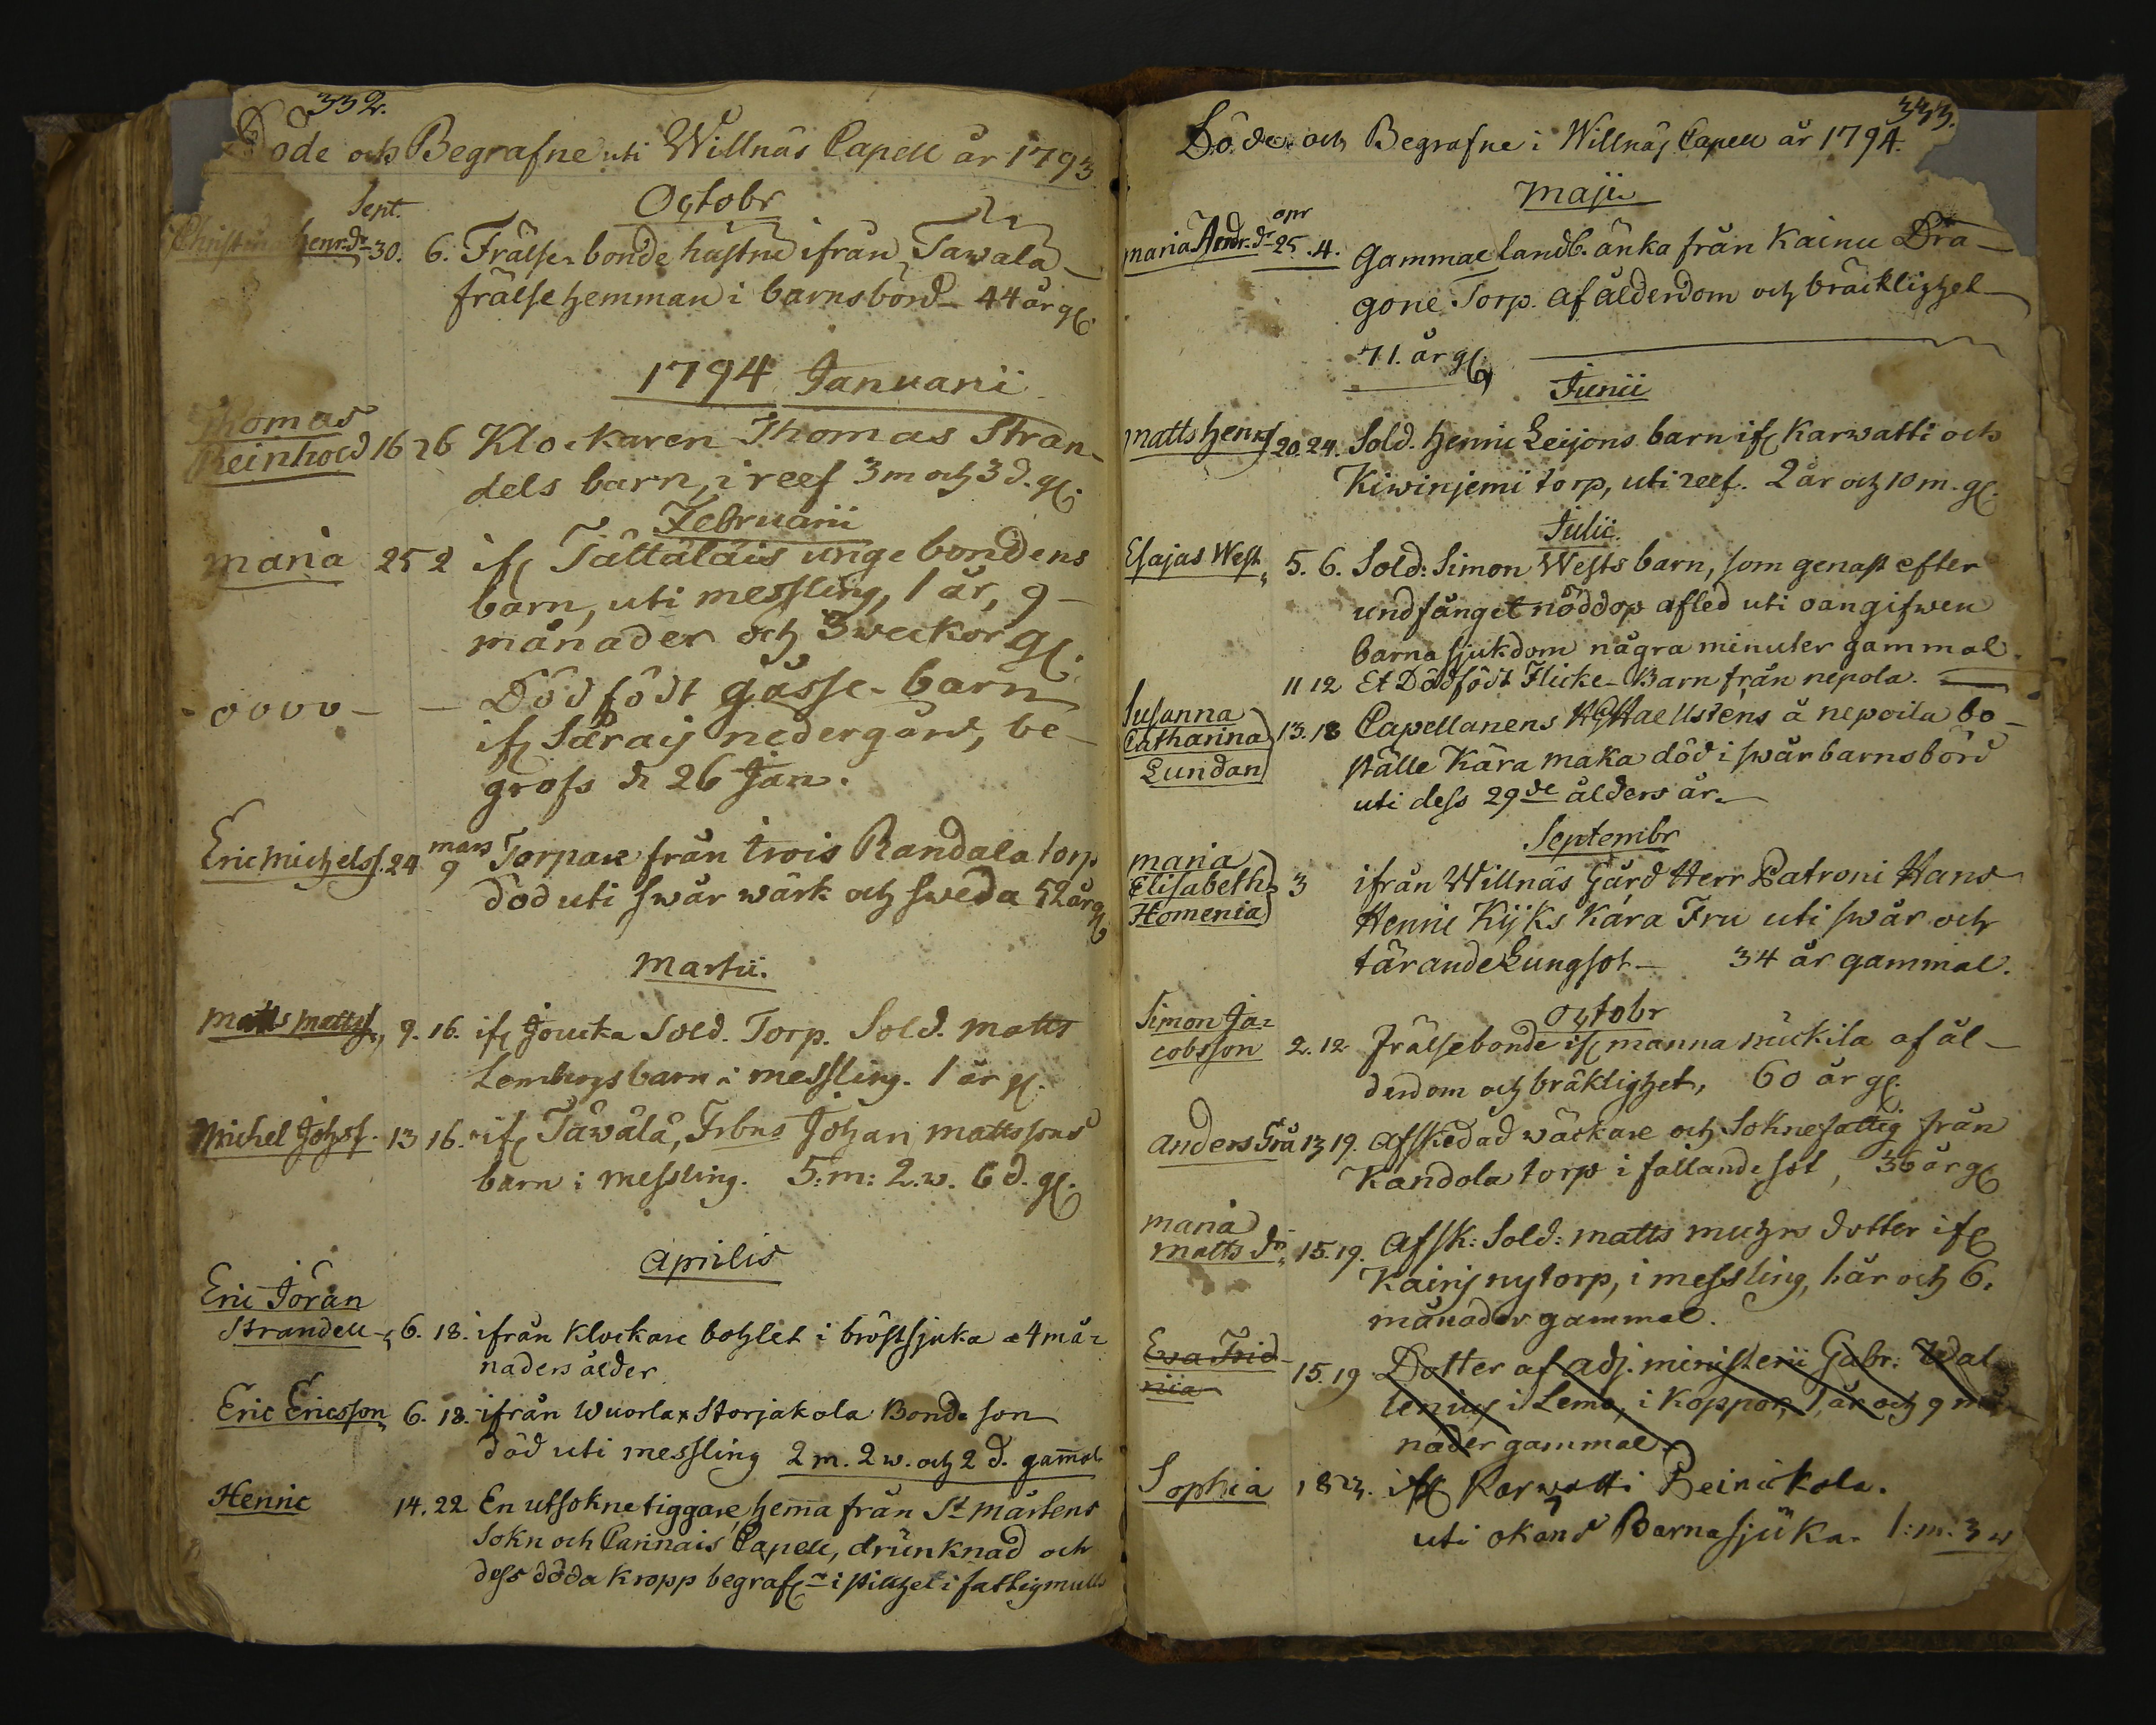 332.
Döde och Begrafne uti Willnäs Capell år 1793
Octobr
Sept.
Christina Henr.dr 30. 6. Frälse bonde hustru ifrån Tawala
frälse hemman i barnsbörd 44 år gl.
1794 Januarii
Thomas
Reinhold 16 26 Klockaren Thomas Stran-
dels barn, i reef 3 m och 3 d. gl.
Februarii
Maria 25 2 ifr Tättäläis unge bondens
barn, uti messling, 1 år, 9
månader och 3 weckor gl.
0000 — — Dödfödt gåsse-barn
ifr Säraij nedergård, be-
grofs d 26 Jan.
Eric Michelss. 24 mars 9 Torpare från trois Randala torp
död uti swår wärk och sweda 52 år gl
Martii.
Matts Mattss. 9. 16. ifr Joucka Sold. Torp. Sold. Matts
Lembergs barn i messling. 1 år gl.
Michel Johss. 13 16. ifr Tåwålå, Frbns Johan Mattssons
barn i messling. 5: m: 2. w. 6 d. gl.
Aprilis
Eric Jöran
Strandell 6. 18. ifrån Klockare bohlet i bröstsjuka a 4 må=
naders ålder
Eric Ericsson 6. 18. ifrån Wuorla Storjakola Bonde son
död uti messling 2 m. 2 w. och 2 d. gamal
Henric 14. 22 En utsokne tiggare, hema från St Mårtens
Sokn och Carinais Capell, drunknad och
dess döda kropp begrafen i stillhet i fattigmull
333.
Döde och Begrafne i Willnäs Capell år 1794.
Maji
Maria Andr.dr apr 25. 4. Gammal landb. änka från Kainu Dra-
gone Torp. af ålderdom och bräcklighet
71. år gl
Junii
Matts Henrss 20. 24. Sold. Henric Leijons barn ifr Karwatti och
Kiwinjemi torp, uti reef. 2 år och 10 m. gl.
Julii.
Esajas West 5. 6. Sold: Simon Wests barn, som genast efter
undfånget nöddop afled uti oangifwen
barnasjukdom några minuter gammal.
11 12 Et Dödfödt Flicke-Barn från nepola.
Susanna
Catharina
Lundan 13. 18 Capellanens å nepoila bo-
ställe Kära maka död i swår barnsbörd
uti dess 29de ålders år.
Septembr
Maria
Elisabeth
Homenia 3 ifrån Willnäs Gård Herr Patroni Hans
Henric Kijks Kära Fru uti swår och
tärande Lungsot — 34 år gammal.
Octobr
Simon Ja=
cobsson 2. 12 Frälsebonde ifr manna nuckila af ål-
derdom och bräklighet, 60 år gl.
Anders Grå 13 19. Afskedad wäckare och Soknefattig från
Kandola torp i fallande sot, 36 år gl
Maria
Matts dr 15. 19. Afsk: Sold: Matts muhrs dotter ifr
Kairij nytorp, i messling, 1 år och 6.
månader gammal.
Ewa Frid-
rica 15. 19 Dotter af Adj. ministerii Gabr: Wal
lenius i Lemo, i Koppor, 1 år och 9 må-
nader gammal.
Sophia 18 23. ifr Karwatti Reinickala.
uti okänd Barnasjuka. 1: m. 3 w